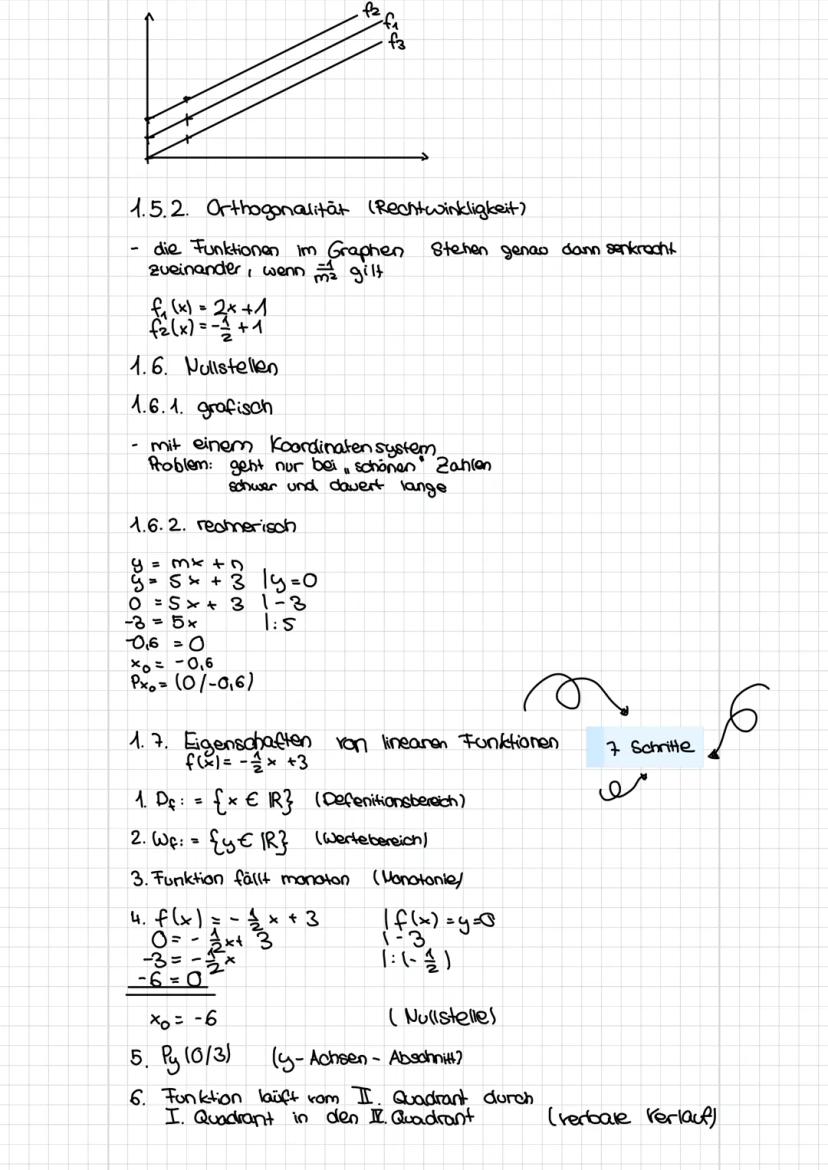 f2
f1
f3
1.5.2. Orthogonalität (Rechtwinkligkeit)
- die Funktionen im Graphen stehen genau dann senkrecht
zueinander, wenn -1/m2 gilt
f1(x) = 2x+1
f2(x) = -1/2 +1
1.6. Nullstellen
1.6.1. grafisch
- mit einem Koordinatensystem
Problem: geht nur bei „schönen" Zahlen
schwer und dauert lange
1.6.2. rechnerisch
y = mx + n
y = 5x + 3 |y=0
0 = 5x + 3 |-3
-3 = 5x |:5
-0,6 = 0
x0 = -0,6
Px0 = (0/-0,6)
1.7. Eigenschaften von linearen Funktionen 7 Schritte
f(x) = -1/2 x +3
1. Df: = {x ∈ ℝ} (Defenitionsbereich)
2. Wf: = {y ∈ ℝ} (Wertebereich)
3. Funktion fällt monoton (Monotonie)
4. f(x) = - 1/2 x + 3 |f(x) = y=0
0 = - 1/2 x + 3 |-3
-3 = - 1/2 x |:(- 1/2)
-6 = 0
x0 = -6 (Nullstelle)
5. Py (0/3) (y-Achsen-Abschnitt)
6. Funktion läuft vom II. Quadrant durch
I. Quadrant in den IV. Quadrant (verbale Verlauf)